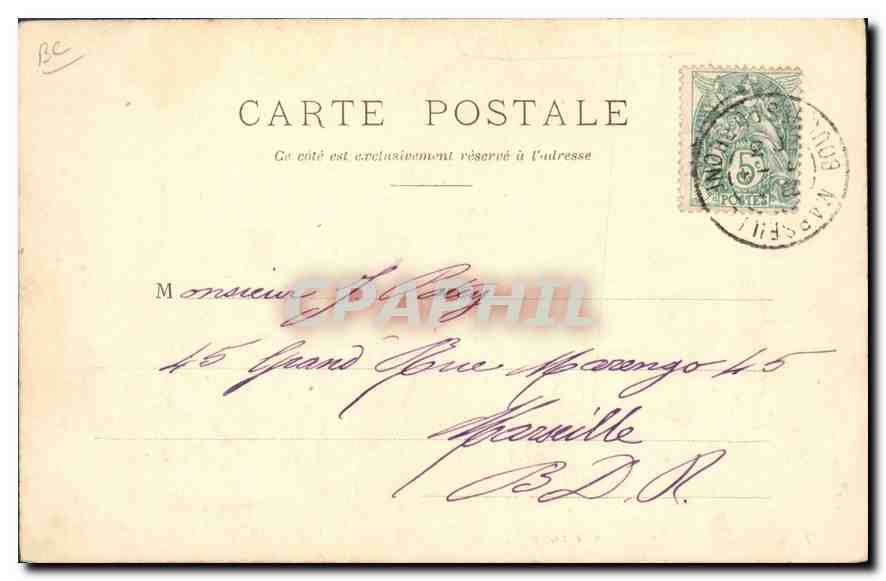 BC
CARTE POSTALE
Ce côté est exclusivement réservé à l'adresse
5c
POSTES
MARSEILLE
BOU DU RHÔNE
Monsieur J.
CPAPHIL
45 Grand Rue Marengo 45
Marseille
B. D. R.